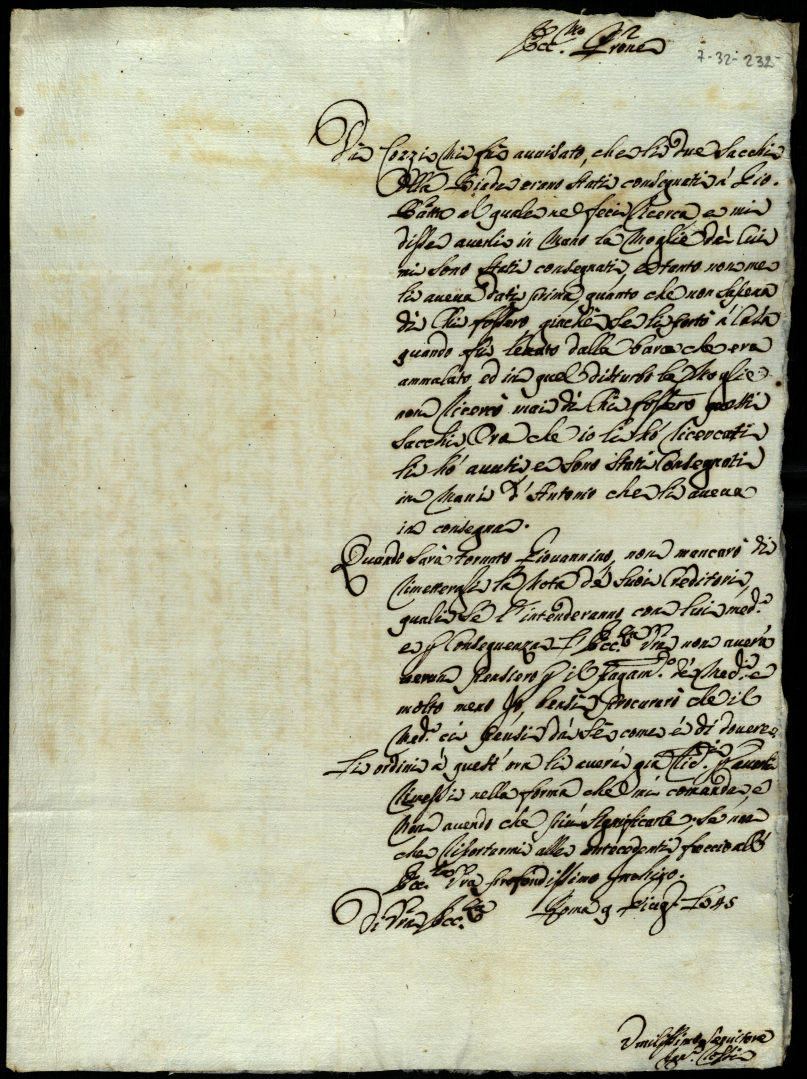 Ecc.mo Prone
7-32-232
Da Cozzi mi fù auuisato, che li due sacchi
della Biada erano stati consegnati à Gio.
Batta al quale ne feci ricerca e mi
disse auerli in mano la Moglie da lui
mi sono stati consegnati, e tanto non me
li aueua dati prima, quanto che non sapeua
di chi fossero, giache se li portò à Casa
quando fù leuato dalle bare che era
ammalato ed in quel disturbo la Moglie
non ricercò mai di chi fossero questi
sacchi Ora che io li hò ricercati
li hò auuti e sono stati consegnati
in mani d'Antonio che li aueua
in consegna.
Quando sarà tornato Giouannino, non mancarò di
rimettergli la Nota de suoi Creditori,
quali se l'intenderanno con lui med.o
e p conseguenza l'Ecc.za Vra non auerà
uerun pensiero p il pagam.to de Med.i e
molto meno Io, bensì procurarò che il
Med.o ci pensi da se come è di douere,
Li ordini à quest'ora li auerà già p auerli
rimessi nella forma che mi comanda, e
Non auendo che più significarle se non
che riportarmi alle antecedenti faccio all'
Ecc.za Vra profondissimo inchino.
Di Vra Ecc.za Roma 9 1745
Umilissimo Seruitore